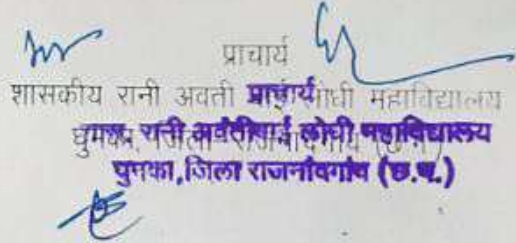 प्राचार्य
शासकीय रानी अवती बाई लोधी महाविद्यालय
घुमका, जिला राजनांदगांव (छ.ग.)
प्राचार्य
शास. रानी अवंतीबाई लोधी महाविद्यालय
घुमका, जिला राजनांदगांव (छ.ग.)